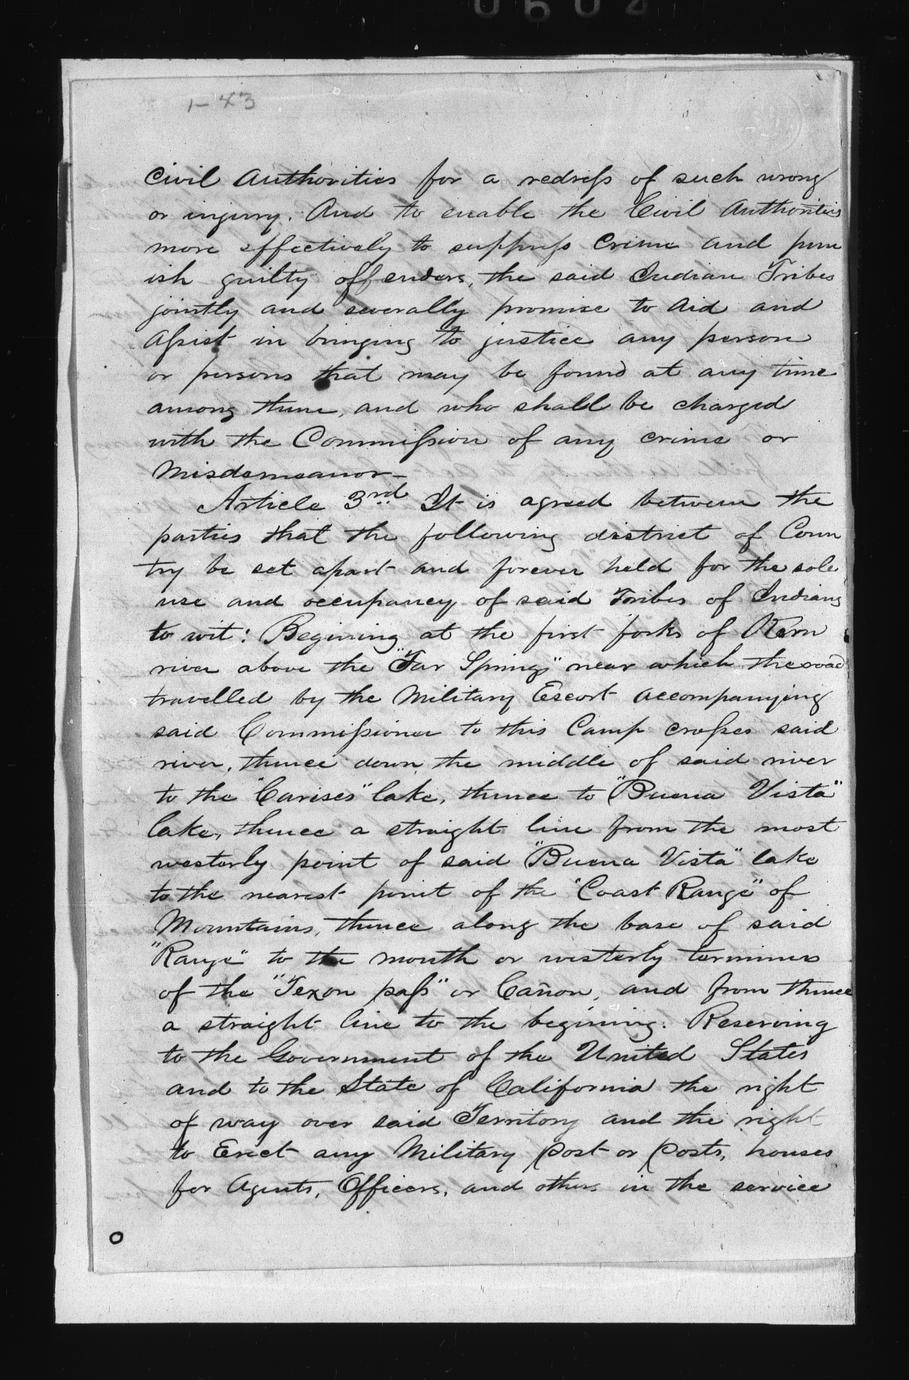 0604
1-43
Civil Authorities for a redress of such wrong
or ingury. And to enable the Civil Authorities
more effectively to suppress Crime and pun
ish guilty offenders, the said Indian Tribes
jointly and severally promise to Aid and
Assist in bringing to justice any person
or persons that may be found at any time
among them, and who shall be charged
with the Commission of any crime or
Misdemeanor—
Article 3rd It is agreed between the
parties that the following district of Coun
try be set apart and forever held for the sole
use and occupancy of said Tribes of Indians
to wit: Begining at the first forks of Kern
river above the "Tar Springs" near which the road
travelled by the Military Escort accompanying
said Commissioner to this Camp crosses said
river, thence down the middle of said river
to the "Carises" lake, thence to "Buena Vista"
lake, thence a straight line from the most
westerly point of said "Buena Vista" lake
to the nearest point of the "Coast Range" of
Mountains, thence along the base of said
"Range" to the mouth or westerly terminus
of the "Texon pass" or Cañon, and from thence
a straight line to the begining. Reserving
to the Government of the United States
and to the State of California the right
of way over said Territory and the right
to Erect any Military post or posts, houses
for Agents, Officers, and others in the service